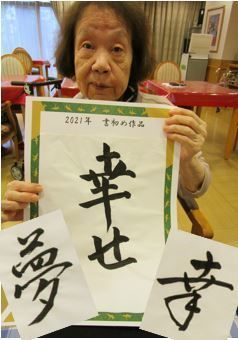 2021年 書初め作品
幸せ
夢
幸